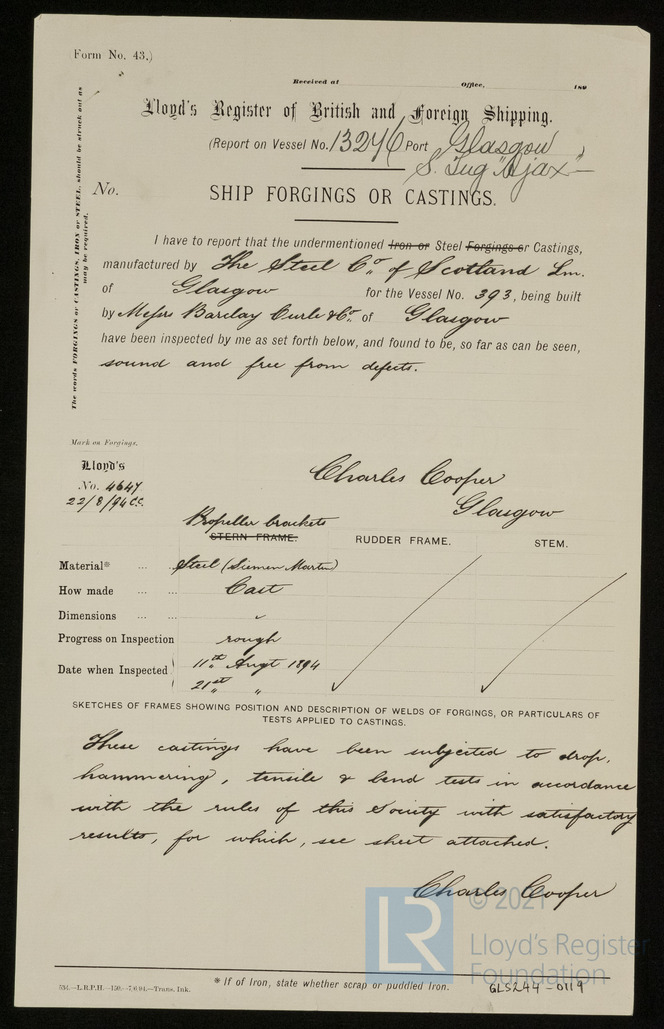 (Form No. 43.)
Received at Office, 189
Lloyd's Register of British and Foreign Shipping.
(Report on Vessel No. 13246 Port Glasgow )
S. Tug "Ajax"
No. SHIP FORGINGS OR CASTINGS.
The words FORGINGS or CASTINGS, IRON or STEEL, should be struck out as
may be required.
I have to report that the undermentioned Iron or Steel Forgings or Castings,
manufactured by The Steel Co. of Scotland Lm.
of Glasgow for the Vessel No. 393, being built
by Messrs Barclay Curle & Co. of Glasgow
have been inspected by me as set forth below, and found to be, so far as can be seen,
sound and free from defects.
Mark on Forgings.
Lloyd's
No. 4647
22/8/94 C.C.
Charles Cooper
Glasgow
Propeller brackets
STERN FRAME. RUDDER FRAME. STEM.
Material* ... ... Steel (Siemen Martin)
How made ... ... Cast
Dimensions ... ... "
Progress on Inspection rough
Date when Inspected 11th Augt 1894
21st "
SKETCHES OF FRAMES SHOWING POSITION AND DESCRIPTION OF WELDS OF FORGINGS, OR PARTICULARS OF
TESTS APPLIED TO CASTINGS.
These castings have been subjected to drop,
hammering, tensile & bend tests in accordance
with the rules of this Society with satisfactory
results, for which, see sheet attached.
Charles Cooper
LR © 2021
Lloyd's Register
Foundation
* If of Iron, state whether scrap or puddled Iron.
534.—L.R.P.H.—150.—7,6,94.—Trans. Ink.
GLS244-0119